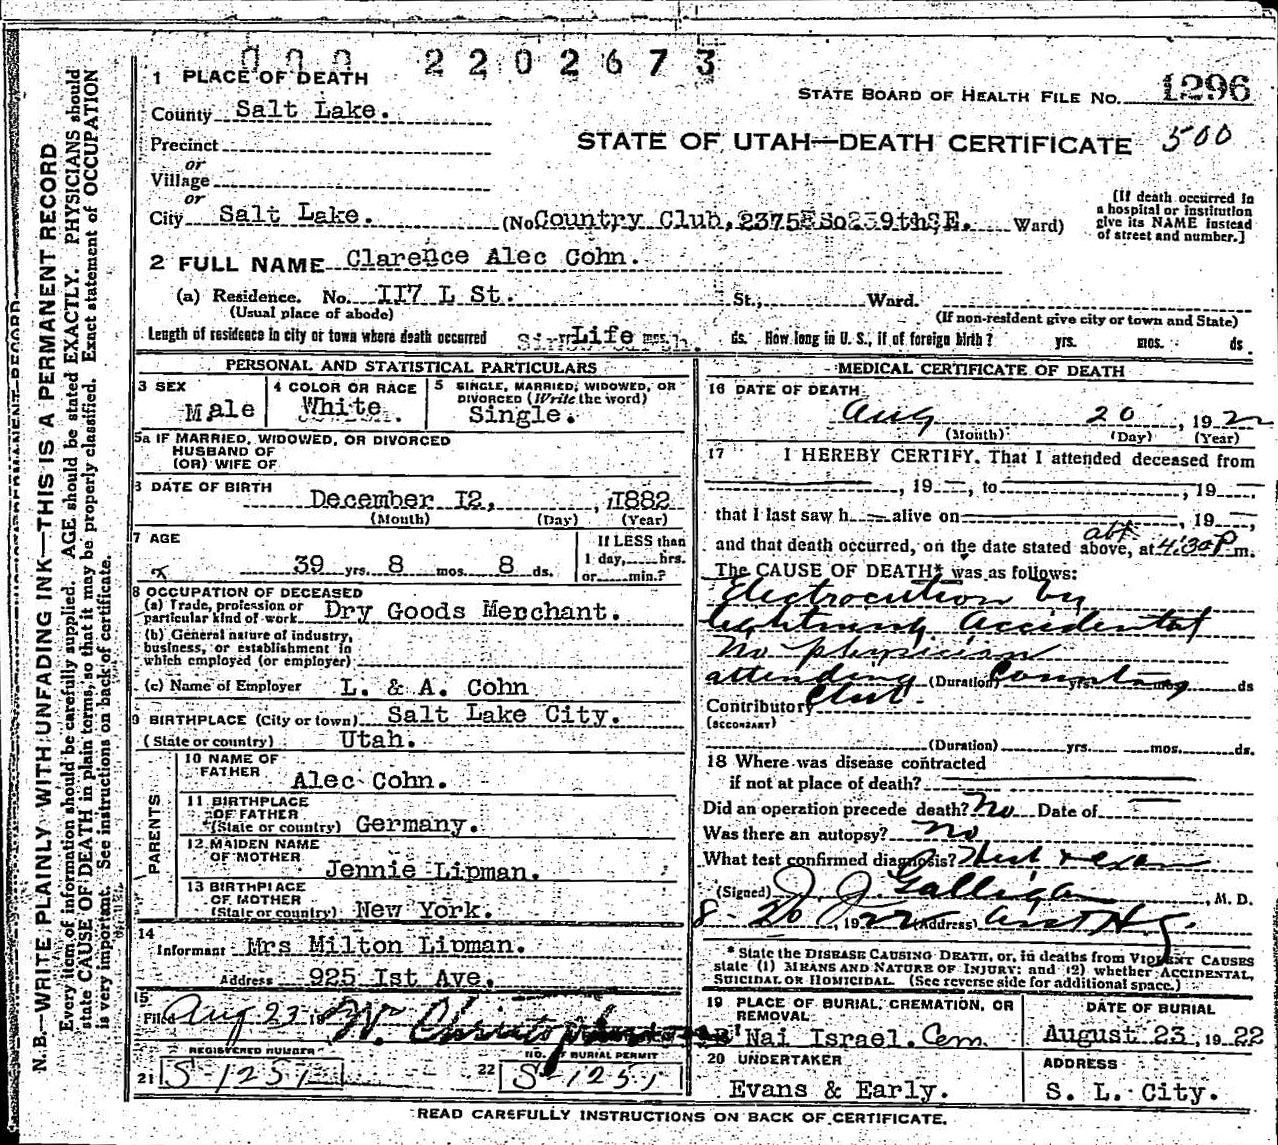 000 2202673
1 PLACE OF DEATH
STATE BOARD OF HEALTH FILE NO. 1296
County Salt Lake.
STATE OF UTAH—DEATH CERTIFICATE 500
Precinct
or
Village
or
City Salt Lake. (No Country Club, Ward)
[If death occurred in
a hospital or institution
give its NAME instead
of street and number.]
2 FULL NAME Clarence Alec Cohn.
(a) Residence. No. II7 L St. St., Ward.
(Usual place of abode)
(If non-resident give city or town and State)
Length of residence in city or town where death occurred Life mos. ds. How long in U. S., if of foreign birth? yrs. mos. ds
PERSONAL AND STATISTICAL PARTICULARS
3 SEX
Male
4 COLOR OR RACE
White
5 SINGLE, MARRIED, WIDOWED, OR
DIVORCED (Write the word)
Single.
5a IF MARRIED, WIDOWED, OR DIVORCED
HUSBAND OF
(OR) WIFE OF
DATE OF BIRTH
December I2, 1882
(Month) (Day) (Year)
7 AGE
39 yrs. 8 mos. 8 ds.
If LESS than
1 day, hrs.
or min.?
8 OCCUPATION OF DECEASED
(a) Trade, profession or
particular kind of work Dry Goods Merchant.
(b) General nature of industry,
business, or establishment in
which employed (or employer)
(c) Name of Employer L. & A. Cohn
9 BIRTHPLACE (City or town) Salt Lake City.
(State or country) Utah.
PARENTS
10 NAME OF
FATHER
Alec Cohn.
11 BIRTHPLACE
OF FATHER
(State or country) Germany.
12 MAIDEN NAME
OF MOTHER
Jennie Lipman.
13 BIRTHPLACE
OF MOTHER
(State or country) New York.
14
Informant Mrs Milton Lipman.
Address 925 Ist Ave.
15
Filed Aug 23 19
REGISTERED NUMBER
21 S-1251
NO. BURIAL PERMIT
22 S-1251
MEDICAL CERTIFICATE OF DEATH
16 DATE OF DEATH
Aug 20, 192
(Month) (Day) (Year)
17 I HEREBY CERTIFY, That I attended deceased from
, 19 , to , 19
that I last saw h alive on , 19
abt
and that death occurred, on the date stated above, at 4:30 P m.
The CAUSE OF DEATH* was as follows:
Electrocution by
lightning Accidental
No physician
attending (Duration) Country yrs. mos. ds
Contributory Club.
(SECONDARY)
(Duration) yrs. mos. ds.
18 Where was disease contracted
if not at place of death?
Did an operation precede death? No Date of
Was there an autopsy? no
What test confirmed diagnosis? Hist & exam
(Signed) J J Galligan, M. D.
8-20, 1922 (Address)
* State the DISEASE CAUSING DEATH, or, in deaths from VIOLENT CAUSES
state (1) MEANS AND NATURE OF INJURY; and (2) whether ACCIDENTAL,
SUICIDAL OR HOMICIDAL. (See reverse side for additional space.)
19 PLACE OF BURIAL, CREMATION, OR
REMOVAL
B' Nai Israel. Cem.
DATE OF BURIAL
August 23, 19 22
20 UNDERTAKER
Evans & Early.
ADDRESS
S. L. City.
READ CAREFULLY INSTRUCTIONS ON BACK OF CERTIFICATE.
N. B.—WRITE PLAINLY WITH UNFADING INK—THIS IS A PERMANENT RECORD
Every item of information should be carefully supplied. AGE should be stated EXACTLY. PHYSICIANS should
state CAUSE OF DEATH in plain terms, so that it may be properly classified. Exact statement of OCCUPATION
is very important. See instructions on back of certificate.